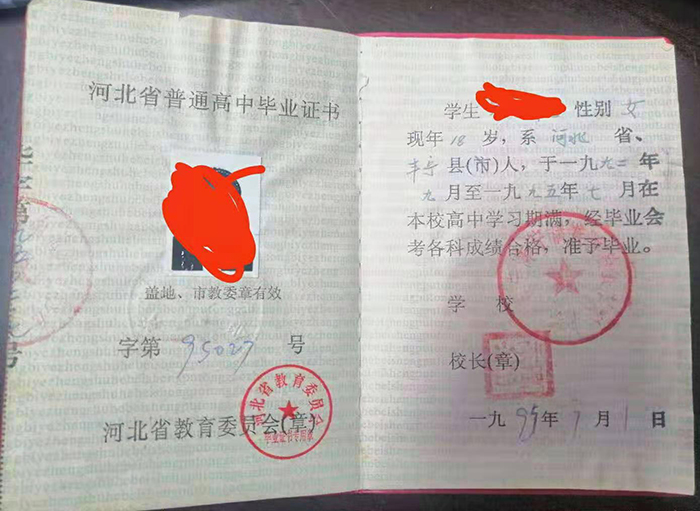 河北省普通高中毕业证书
盖地、市教委章有效
字第 95027 号
河北省教育委员会(章)
河北省教育委员会
毕业证书专用章
学生 性别 女
现年 18 岁,系 河北 省、
丰宁 县(市)人,于一九九二年
九月至一九九五年七月在
本校高中学习期满,经毕业会
考各科成绩合格,准予毕业。
学 校
校长(章)
一九95年7月1日